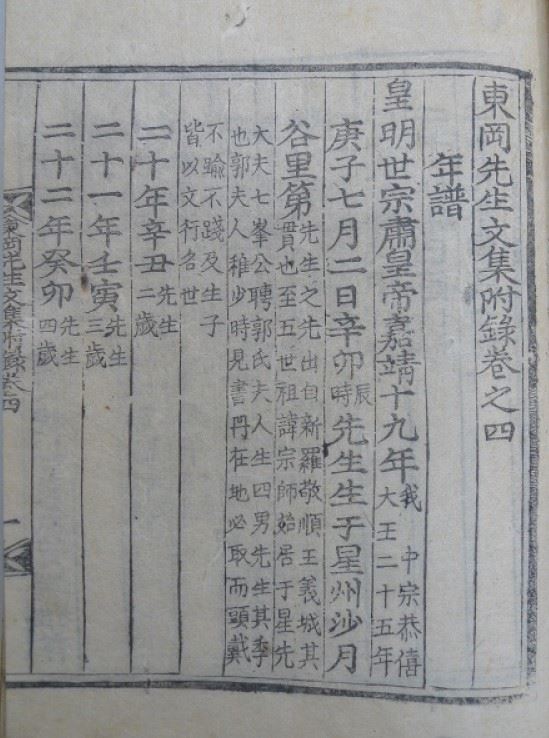 東岡先生文集附錄卷之四
年譜
皇明世宗肅皇帝嘉靖十九年我 中宗恭僖
大王二十五年
庚子七月二日辛卯辰
時先生生于星州沙月
谷里第先生之先出自新羅敬順王義城其
貫也至五世祖諱宗師始居于星先
大夫七峯公聘郭氏夫人生四男先生其季
也郭夫人稚少時見書丹在地必取而頭戴
不踰不踐及生子
皆以文行名世
二十年辛丑先生
二歲
二十一年壬寅先生
三歲
二十二年癸卯先生
四歲
東岡先生文集附錄卷四
一